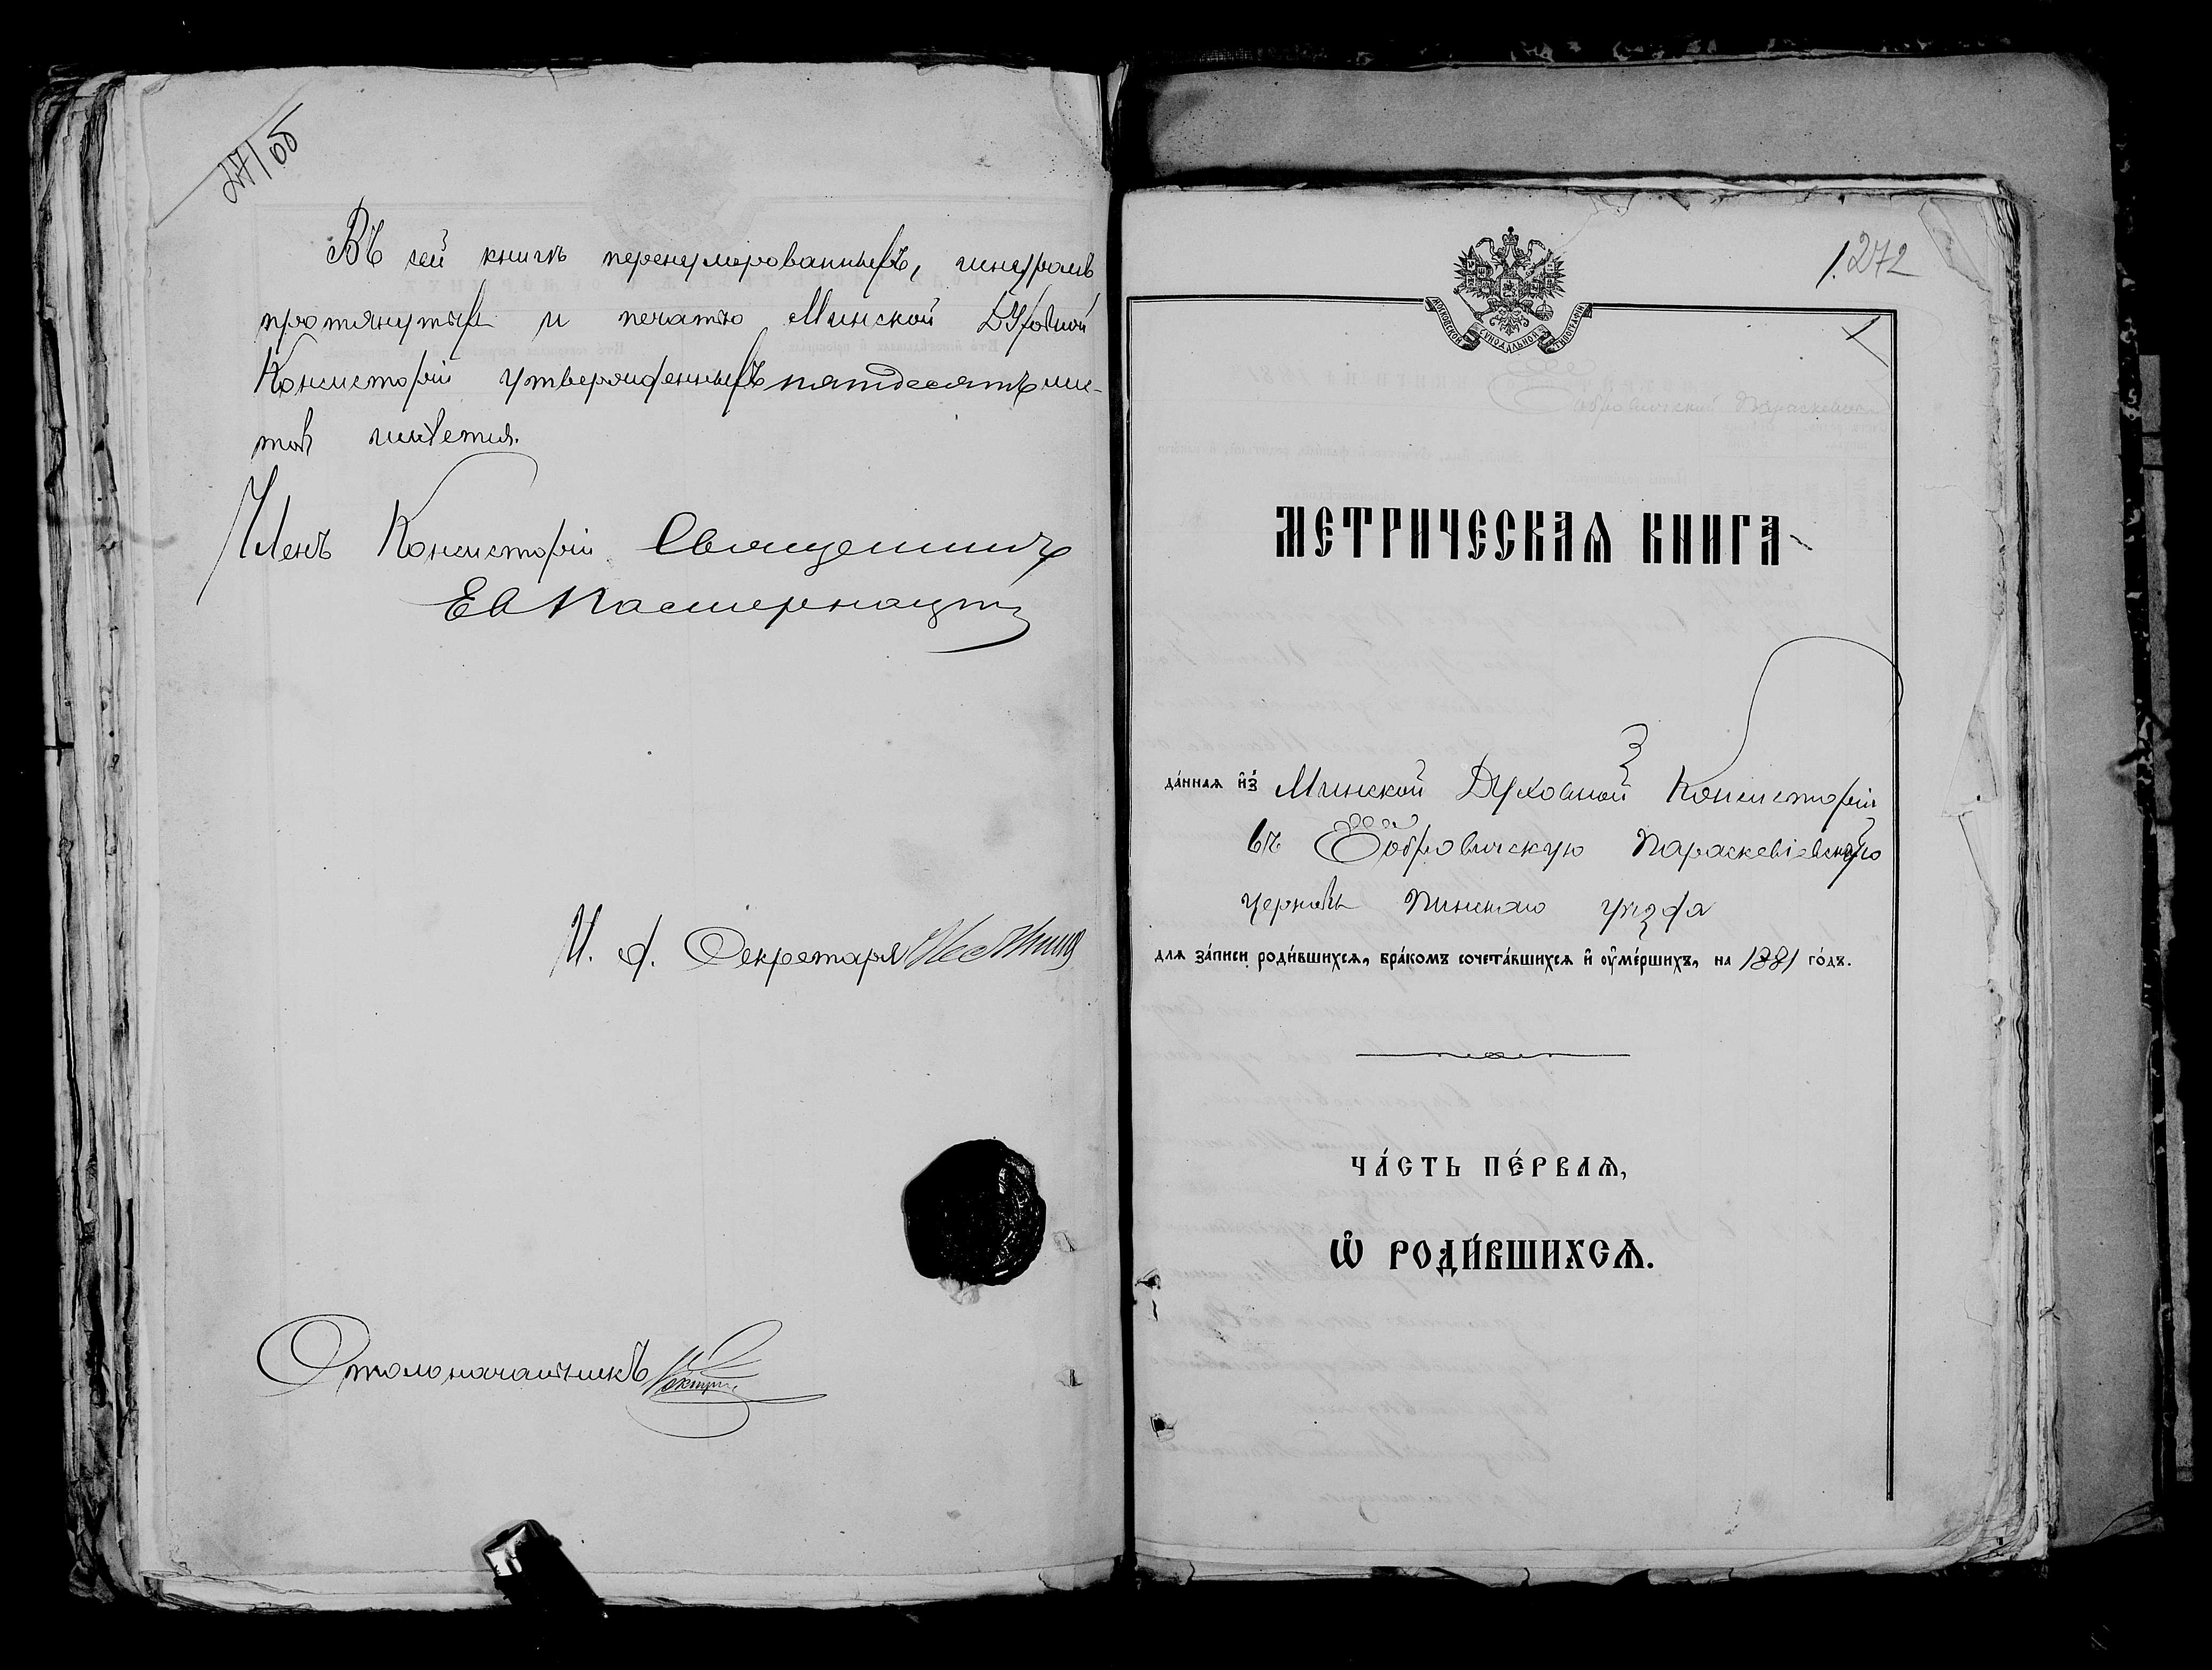 271 об
Въ сей книгѣ перенумерованныхъ, шнуромъ
протянутыхъ и печатью Минской Духовной
Консисторіи утвержденныхъ пятдесятъ лис-
товъ имѣется.
Членъ Консисторіи Священникъ
Ев Пастернацкій
И. д. Секретаря
Столоначальникъ
1. 272
МОСКОВСКОЙ СѴНОДАЛЬНОЙ ТИПОГРАФІИ
МЕТРИЧЕСКАѦ КНИГА
да́ннаѧ и҆з̾ Минской Духовной Консисторіи
въ Бобровичскую Параскевіевскую
церковь Пинскаго уѣзда
длѧ за́писи роди́вшихсѧ, бра́комъ сочета́вшихсѧ и҆ ᲂу҆ме́ршихъ, на 1881 го́дъ.
ЧА́СТЬ ПЕ́РВАѦ,
Ѽ РОДИ́ВШИХСѦ.